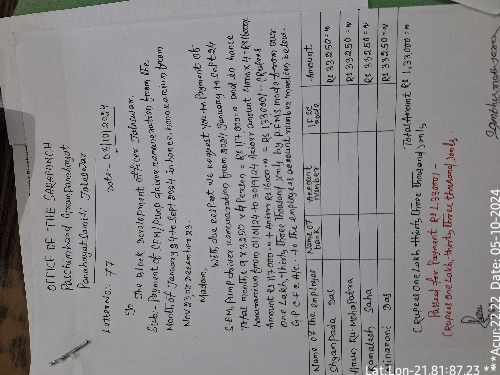 OFFICE OF THE SARAPANCH
Paschimbad Grampanchayat
Panchayat Samiti Jaleswar
Letter no: 77 Date - 05/10/2024
To The Block Development officer Jaleswar.
Sub:- Payment of SEM/Pump driver remuneration from the
Month of January 24 to Sept 2024 in hance honaxarium from
Nov 23 to December 23.
Madam,
With due respect we request you to Payment of
SEM, Pump driver remuneration from 2024 January to Sept 24
Total months 9 x 3250 x 4 Person = Rs 1,17,000 = and in hance
honaxarium from
Amount Rs 117000 = + Rs 16000 = Rs (1,33,000/-) Rupees
one Lakh, thirty three thousand) only by PFMS mode from our
G.P C.F.C A/c. to the employee account number mention below.
Name of the employee Name of bank Account number IFSC code Amount
Shyam Pada Das Rs 33250 =
Arun Ku-Mohapatra Rs 33250 =
Kamalesh Saha Rs 33250 =
Narani Das Rs 33250 =
Total Amount Rs 1,33,000 =
(Rupees One Lakh thirty three thousand) only
Passed for Payment Rs 1,33,000/-
(Rupees One Lakh, thirty three thousand) only.
Lat:Lon-21.81:87.23
Date: 05-10-2024